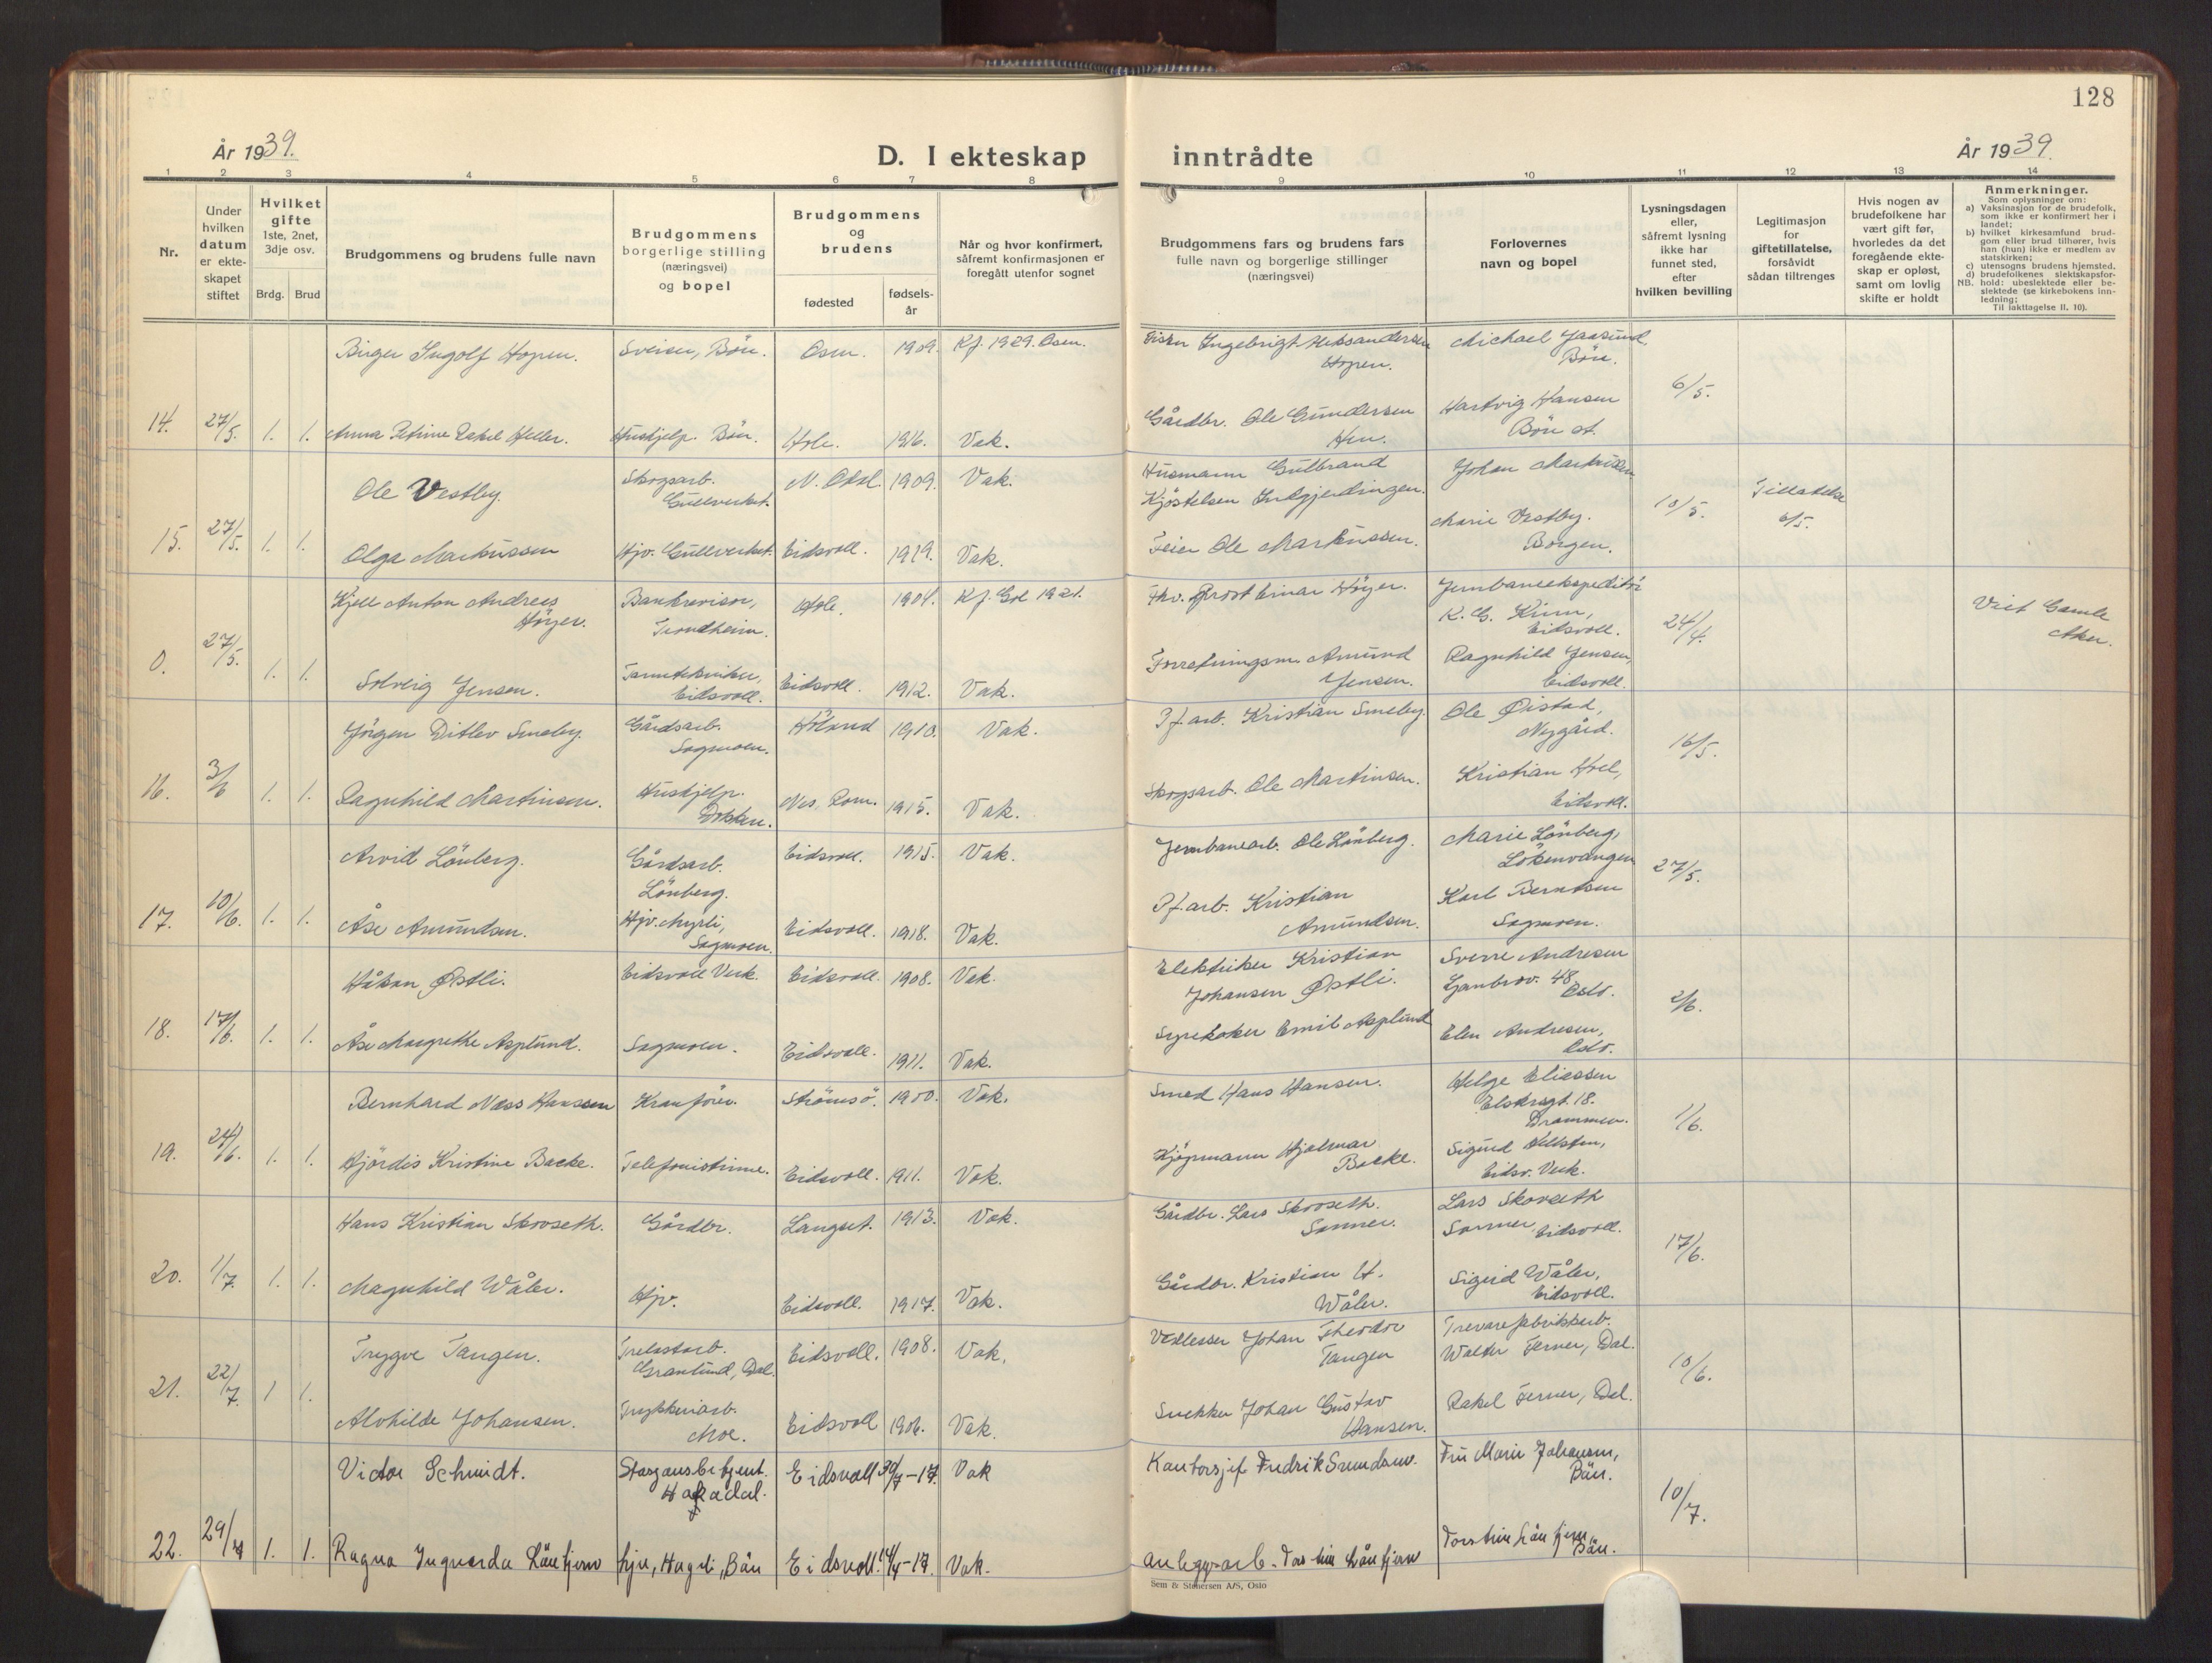 128
År 1939.
D. I ekteskap inntrådte
År 1939.
1 2 3 4 5 6 7 8 9 10 11 12 13 14
Nr.
Under
hvilken
datum
er ekte-
skapet
stiftet
Hvilket
gifte
1ste, 2net,
3dje osv.
Brdg. Brud
Brudgommens og brudens fulle navn
Brudgommens
borgerlige stilling
(næringsvei)
og bopel
Brudgommens
og
brudens
fødested
fødsels-
år
Når og hvor konfirmert,
såfremt konfirmasjonen er
foregått utenfor sognet
Brudgommens fars og brudens fars
fulle navn og borgerlige stillinger
(næringsvei)
Forlovernes
navn og bopel
Lysningsdagen
eller,
såfremt lysning
ikke har
funnet sted,
efter
hvilken bevilling
Legitimasjon
for
giftetillatelse,
forsåvidt
sådan tiltrenges
Hvis nogen av
brudefolkene har
vært gift før,
hvorledes da det
foregående ekte-
skap er opløst,
samt om lovlig
skifte er holdt
Anmerkninger.
Som oplysninger om:
a) Vaksinasjon for de brudefolk,
som ikke er konfirmert her i
landet;
b) hvilket kirkesamfund brud-
gom eller brud tilhører, hvis
han (hun) ikke er medlem av
statskirken;
c) utensogns brudens hjemsted.
d) brudefolkenes slektskapsfor-
NB. hold: ubeslektede eller be-
slektede (se kirkebokens inn-
ledning;
Til iakttagelse II. 10).
14. 27/5. 1. 1.
Birger Ingolf Hopen. Sveiser, Bön. Osen. 1909. Kf. 1929. Osen.
Fisker Ingebrigt Aleksandersen
Hopen.
Michael Jaasund,
Bön.
6/5.
Anna Petrine Rakel Heller. Hushjelp. Bön. Hole. 1916. Vak.
Gårdbr. Ole Gundersen
Hen.
Hartvig Hansen
Bön st.
15. 27/5. 1. 1.
Ole Vestby. Skogsarb.
Gullverket. 1909. Vak.
Husmann Gulbrand
Kjöstelsen
Johan Markussen
10/5. Tillatelse
6/5.
Olga Markussen Hjv. Gullverket. Eidsvoll. 1919. Vak.
Feier Ole Markussen.
Marie Vestby.
Borgen.
0. 27/5. 1. 1.
Kjell Anton Andreas
Höyer. Bankrevisor,
Trondheim. Hole. 1904. Kf. Gol 1921.
Fhv. Prost Einar Höyer.
Jernbaneekspeditör
K. G. Kinn,
Eidsvoll.
24/4.
Viet Gamle
Aker.
Solveig Jensen. Tanntekniker,
Eidsvoll. Eidsvoll. 1912. Vak.
Forretningsm. Amund
Jensen.
Ragnhild Jensen,
Eidsvoll.
16. 3/6 1. 1.
Jörgen Ditlev Smeby. Gårdsarb.
Sagmoen. Höland 1910. Vak.
Pf. arb. Kristian Smeby.
Ole Øistad,
Nygård.
16/5.
Ragnhild Martinsen. Hushjelp.
Dokken. Nes, Rom. 1915. Vak.
Skogsarb. Ole Martinsen.
Kristian Hoel,
Eidsvoll.
17. 10/6. 1. 1.
Arvid Lönberg. Gårdsarb.
Lönberg. Eidsvoll. 1915. Vak.
Jernbanearb. Ole Lönberg.
Marie Lönberg,
Lökenvangen
27/5.
Åse Amundsen. Hjv. Myrli,
Sagmoen. Eidsvoll. 1918. Vak.
Pf. arb. Kristian
Amundsen.
Karl Berntsen
Sagmoen.
18. 17/6. 1. 1.
Håkon Østli. Eidsvoll Verk. Eidsvoll. 1908. Vak.
Elektriker Kristian
Johansen Østli.
Sverre Andresen
Ljanbrov. 48
Oslo.
2/6.
Åse Margrethe Asplund. Sagmoen. Eidsvoll. 1911. Vak.
Syrekoker Emil Asplund
Elen Andresen,
Oslo.
19. 24/6. 1. 1.
Bernhard Næss Hanssen Kranförer. Strömsö. 1900. Vak.
Smed Hans Hansen.
Helge Eliassen
18.
Drammen.
1/6.
Hjördis Kristine Backe. Telefonistinne. Eidsvoll. 1911. Vak.
Kjöpmann Hjalmar
Backe.
Sigurd Hellsten,
Eidsv. Verk.
20. 1/7. 1. 1.
Hans Kristian Skroseth. Gårdbr. Langset. 1913. Vak.
Gårdbr. Lars Skroseth.
Sønner.
Lars Skoseth
Eidsvoll.
17/6.
Magnhild Wåler. Hjv. Eidsvoll. 1917. Vak.
Gårdbr. Kristian H.
Wåler.
Sigurd Wåler,
Eidsvoll.
21. 22/7. 1 1.
Trygve Tangen. Trelastarb.
Granlund, Dal. Eidsvoll. 1908. Vak.
Johan Theodor
Tangen
Trevarefabrikkarb.
Walter Ferner, Dal.
10/6.
Alvhilde Johansen. Trykkeriarb.
Moe. Eidsvoll 1906. Vak.
Snekker Johan Gustav
Hansen.
Rakel Ferner, Dal.
22. 29/7 1. 1.
Victor Schmidt. Stasjonsbetjent.
Hakadal. Eidsvoll 30/7-17. Vak
Kontorsjef Fredrik
Fru Marie Johansen,
Bön.
10/7.
Ragna Ingvarda Låntjern hjv, Hagli, Bön Eidsvoll. 14/4-17. Vak.
Anleggsarb. Torstein Låntjern
Torstein Låntjern
Bön.
Sem & Stenersen A/S, Oslo